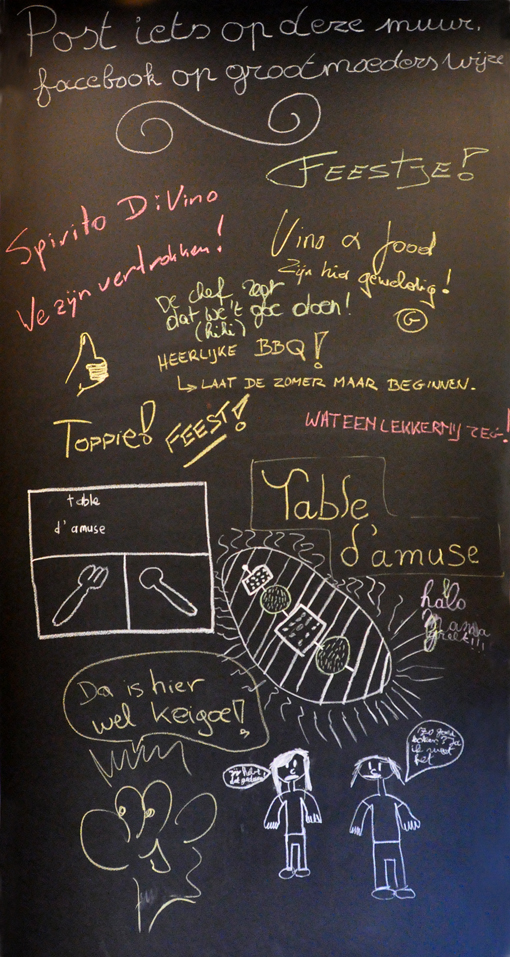 Post iets op deze muur,
facebook op grootmoeders wijze
FEESTJE!
Spirito DiVino
We zijn vertrokken!
Vino & food
Zijn hier geweldig!
De chef zegt
dat we 't goe doen!
(hihi)
G
HEERLIJKE BBQ!
↳ LAAT DE ZOMER MAAR BEGINNEN.
Toppie! FEEST!
WAT EEN LEKKERNIJ ZEG!
table
d'amuse
Table
d'amuse
halo
Da is hier
wel keigoe!!
ik weet
het